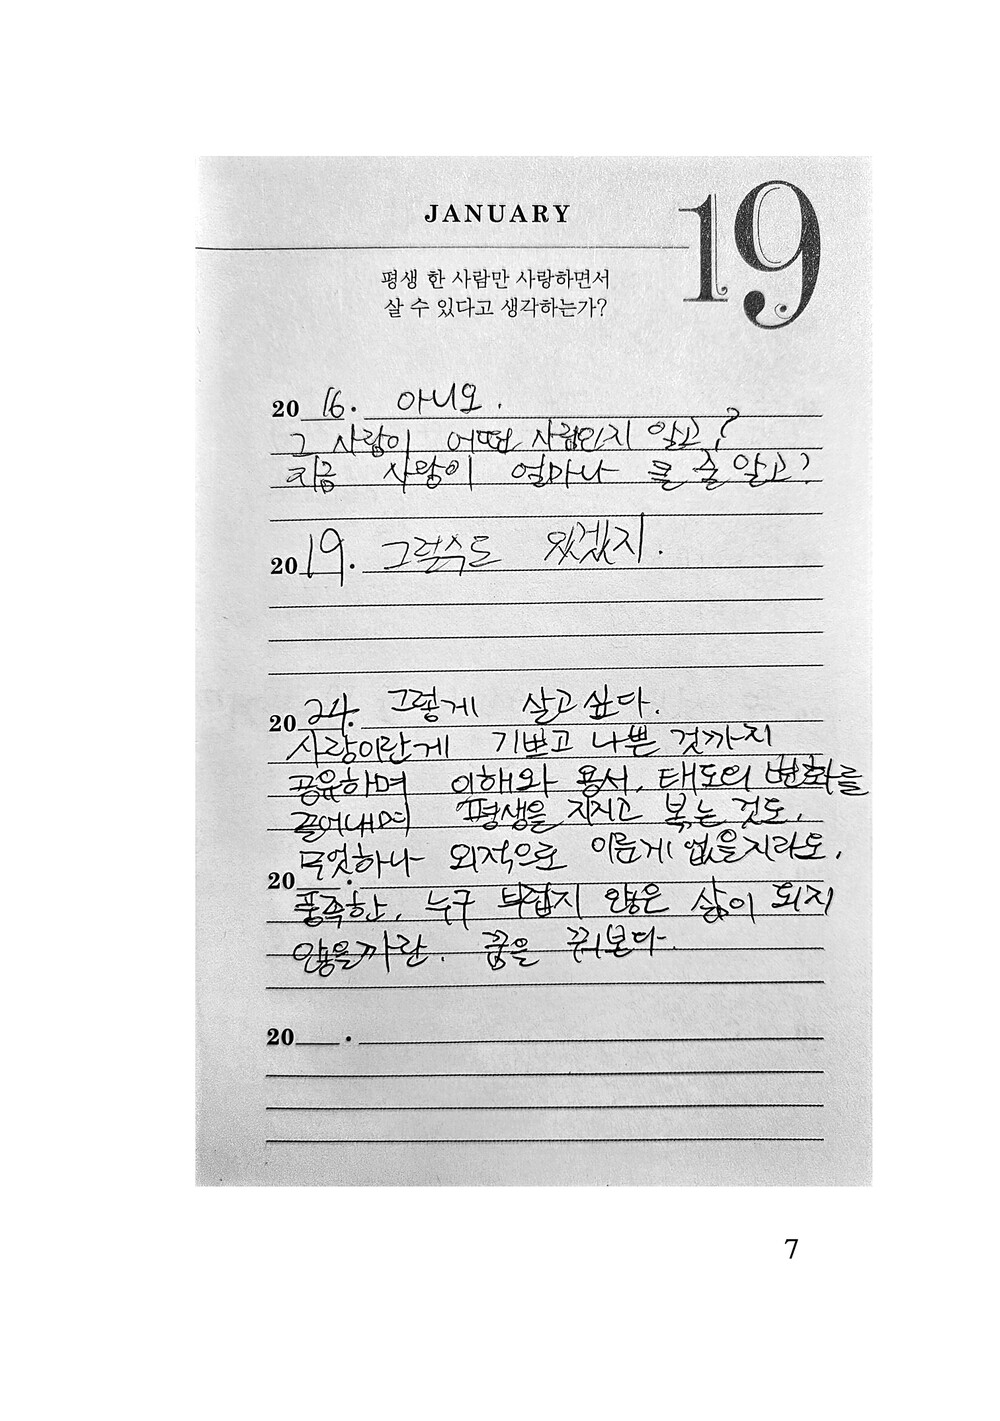 JANUARY
19
평생 한 사람만 사랑하면서
살 수 있다고 생각하는가?
2016. 아니오.
그 사람이 어떤 사람인지 알고?
지금 사랑이 얼마나 클 줄 알고?
2019. 그럴수도 있겠지.
2024. 그렇게 살고싶다.
사랑이란게 기쁘고 나쁜 것까지
공유하며 이해와 용서, 태도의 변화를
끌어내며 평생을 지지고 볶는 것도,
무엇하나 외적으로 이룬게 없을지라도,
20 .
풍족한, 누구 부럽지 않은 삶이 되지
않을까란. 꿈을 꿔본다.
20 .
7